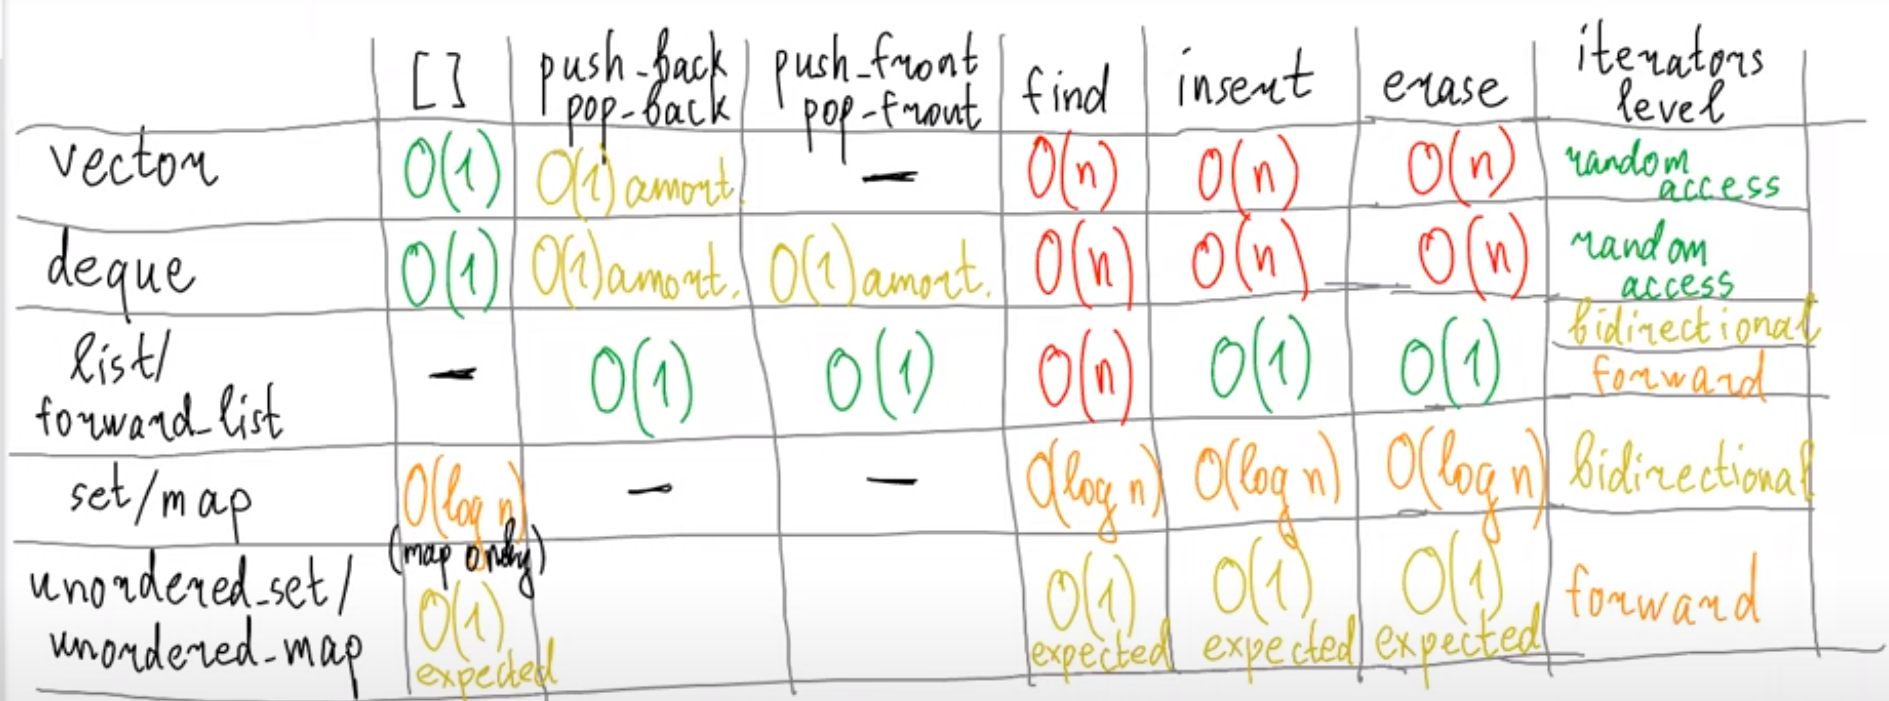 [ ] push_back push_front find insert erase iterators
pop-back pop-front level
vector O(1) O(1) amort. — O(n) O(n) O(n) random access
deque O(1) O(1) amort. O(1) amort. O(n) O(n) O(n) random access
list/ forward_list — O(1) O(1) O(n) O(1) O(1) bidirectional forward
set/map O(log n) (map only) — — O(log n) O(log n) O(log n) bidirectional
unordered_set/ unordered_map O(1) expected O(1) expected O(1) expected O(1) expected forward